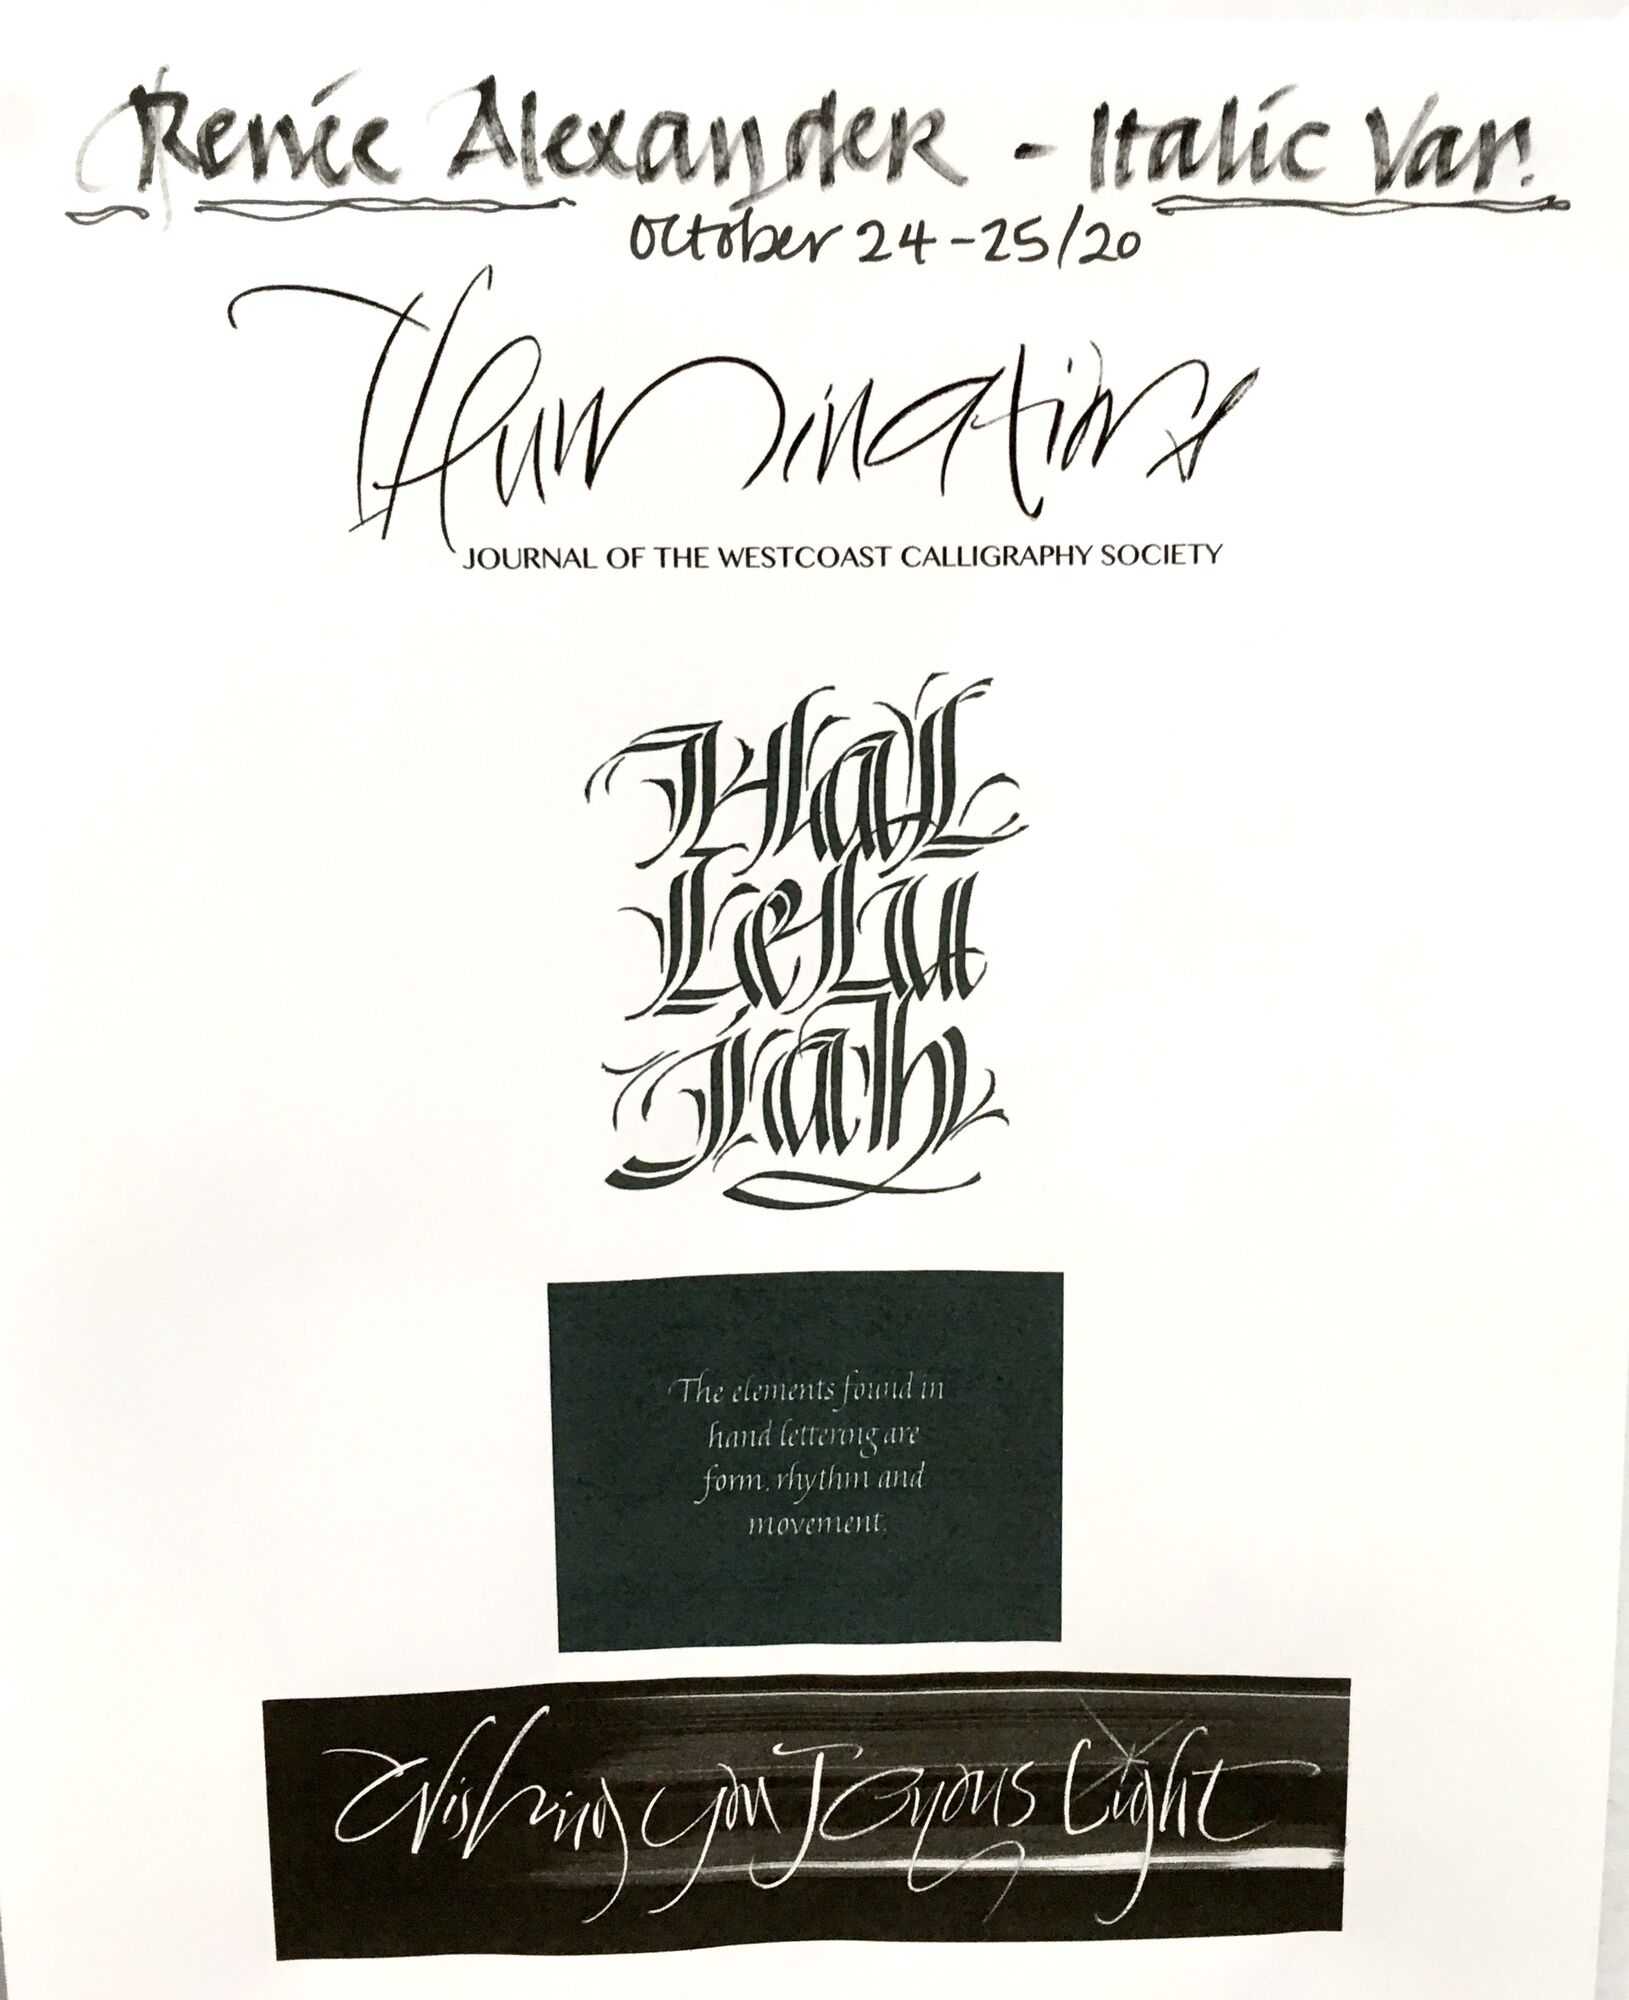 Renée Alexander - Italic Var.
October 24-25/20
Illuminations
JOURNAL OF THE WESTCOAST CALLIGRAPHY SOCIETY
Hal
Lelu
jah
The elements found in
hand lettering are
form, rhythm and
movement.
Wishing you Joyous Light